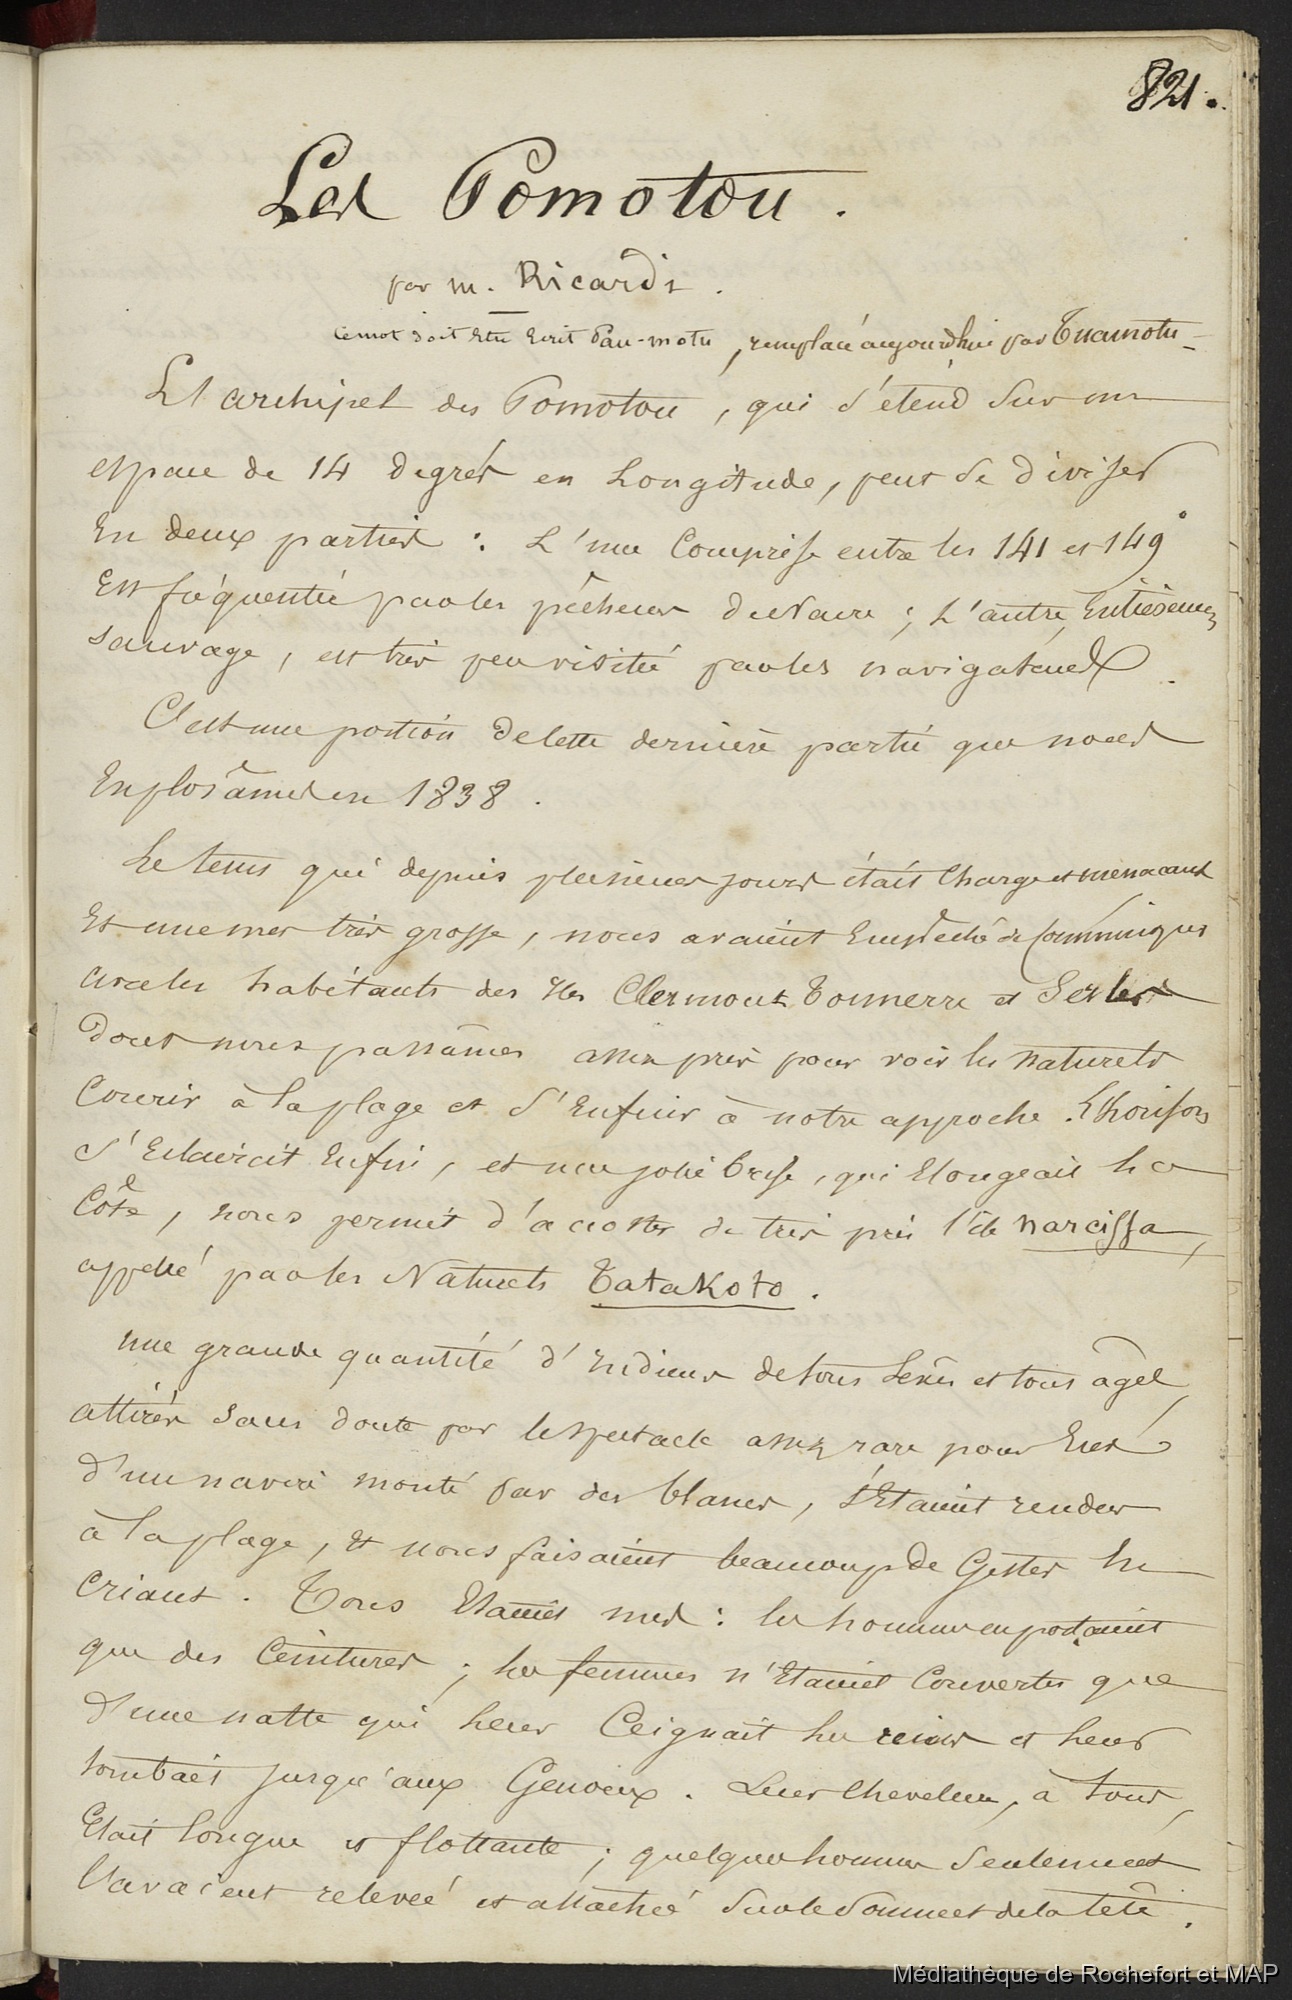 821.
Les Pomotou.
par m. Ricardi.
Ce mot doit être Ecrit Pau-motu, remplacé aujourd'hui par Tuamotu_
L'archipel des Pomotou, qui s'étend Sur un
espace de 14 degrés en Longitude, peut Se diviser
En deux parties : L'une Comprise entre les 141 et 149°
Est fréquentée par les pêcheurs de Nacre ; L'autre, Entièrement
Sauvage, est très peu visitée par les navigateurs.
C'est une portion de Cette dernière partie que nous
Explorâmes en 1838.
Le tems qui depuis plusieurs jours était Chargé et menacant
Et une mer très grosse, nous avaient Empêché de Communiquer
avec les habitants des Iles Clermont Tonnerre et Serles
dont nous passâmes assez près pour voir les naturels
Courir à la plage et S'Enfuir à notre approche. L'horison
S'Eclaircit Enfin, et une jolie brise, qui Elongeait La
Côte, nous permit d'accoster de très près l'ile Narcissa,
appelé par les Naturels Tatakoto.
Une grande quantité d'Indiens de tous Sexes et tous âges,
attirés Sans doute par le Spectacle assez rare pour Eux
d'un navire monté par des blancs, S'Etaient rendus
à la plage, Et nous faisaient beaucoup de Gestes En
Criant. Tous Etaient nus : les hommes en portaient
que des Ceintures ; Les femmes n'Etaient Couvertes que
d'une natte qui Leur Ceignait Les reins et Leur
tombait jusqu'aux Genoux. Leur Chevelure, à tous,
Etait Longue et flottante ; quelques hommes Seulement
L'avaient relevée et attachée Sur le Sommet de la tête.
Médiathèque de Rochefort et MAP